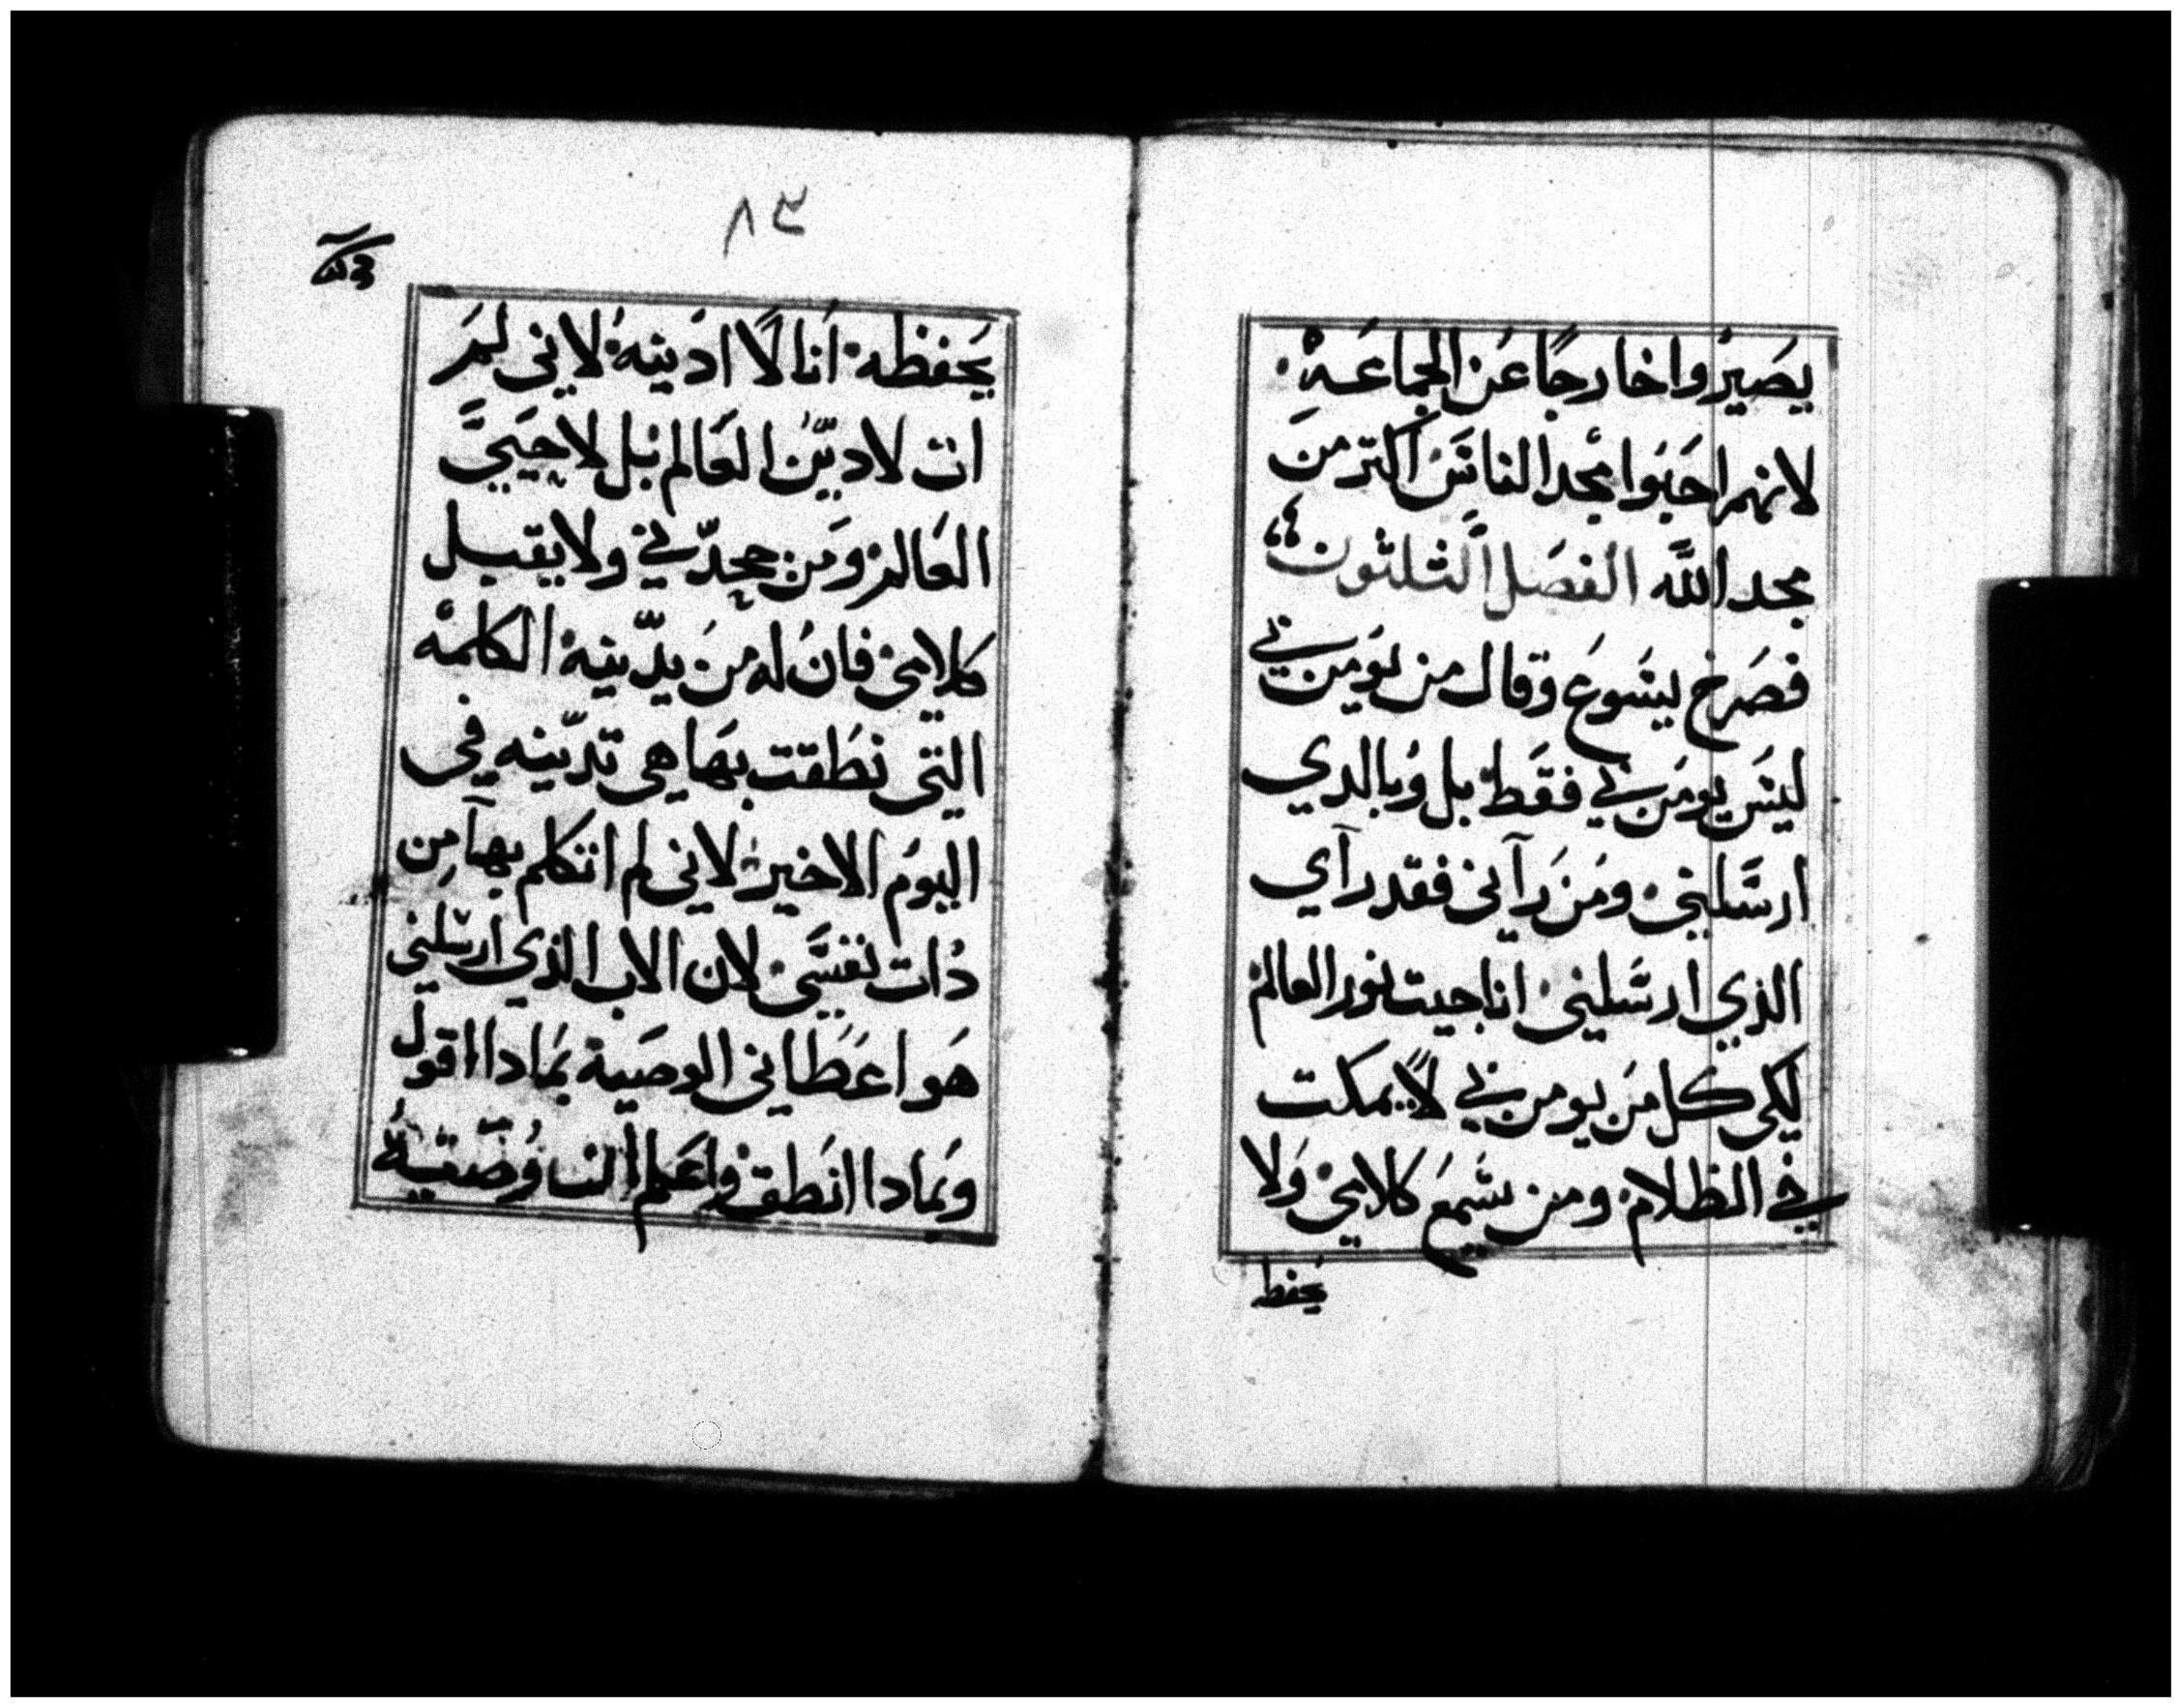 يصيروا خارجًا عن الجماعة.
لانهم احبوا مجد الناس اكتر من
مجد الله الفصل الثلثون
فصرخ يسوع وقال من يومن بي
ليس يومن بي فقط بل وبالدي
ارسلني ومن رآني فقد رآي
الذي ارسلني انا جيت نور العالم
لكي كل من يومن بي لا يمكت
في الظلام ومن يسمع كلامي ولا
يحفظ
٨٣
يحفظه انا لا ادينه لاني لم
ات لادين العالم بل لاحيي
العالم ومن جحدني ولا يقبل
كلامي فان له من يدينه الكلمه
التي نطقت بها هي تدينه في
اليوم الاخير لاني لم اتكلم بها من
دات نفسي لان الاب الذي ارسلني
هو اعطاني الوصية بمادا اقول
وبمادا انطق واعلم ان وصيته